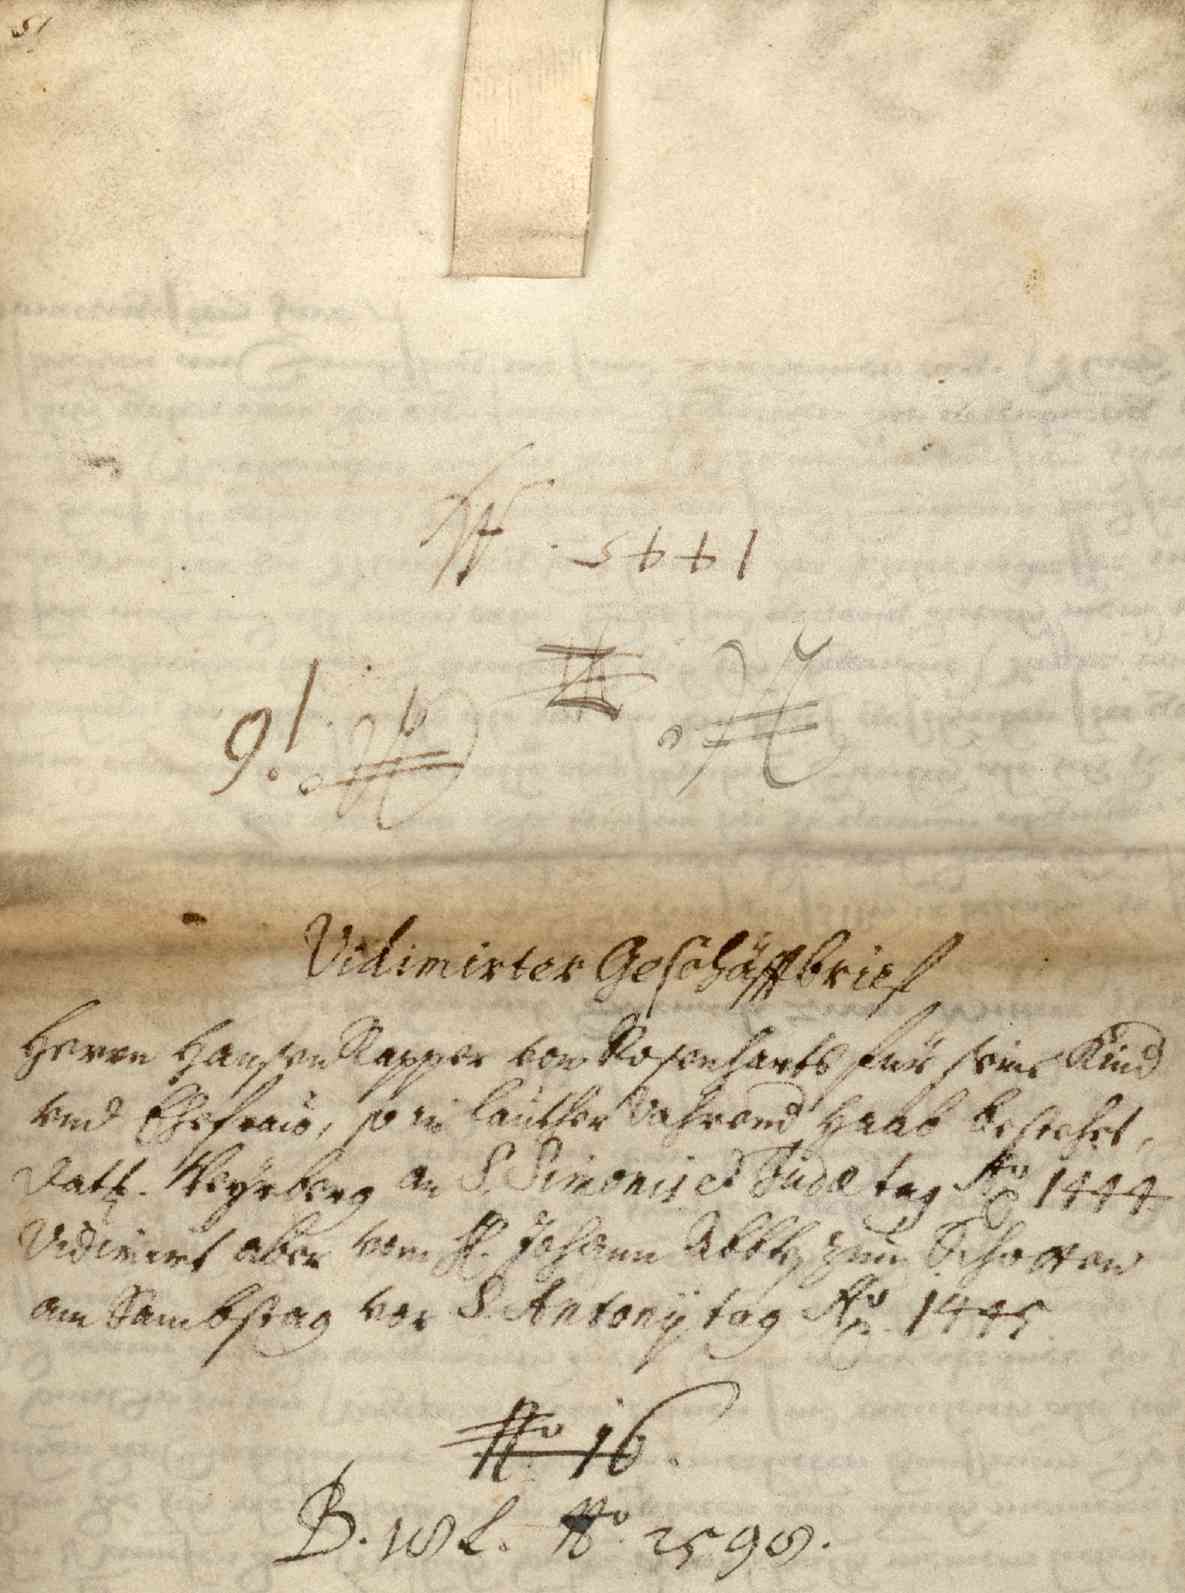 51
1445.
N
N
No. 16
Vidimirter Geschäfftbrief
Herrn Hannsen Rapper von Rosenharts für seine Kind
vnd Ehefraw, so in lauther vahrend Haab bestehet,
Datt. Weyrberg an S. Simonis et Judae tag Ao 1444
Vidimirt aber von H. Johann Abbt zum Schotten
am Sambstag vor S. Antony tag Ao. 1445
No 16.
B. 18 L. No. 2598.